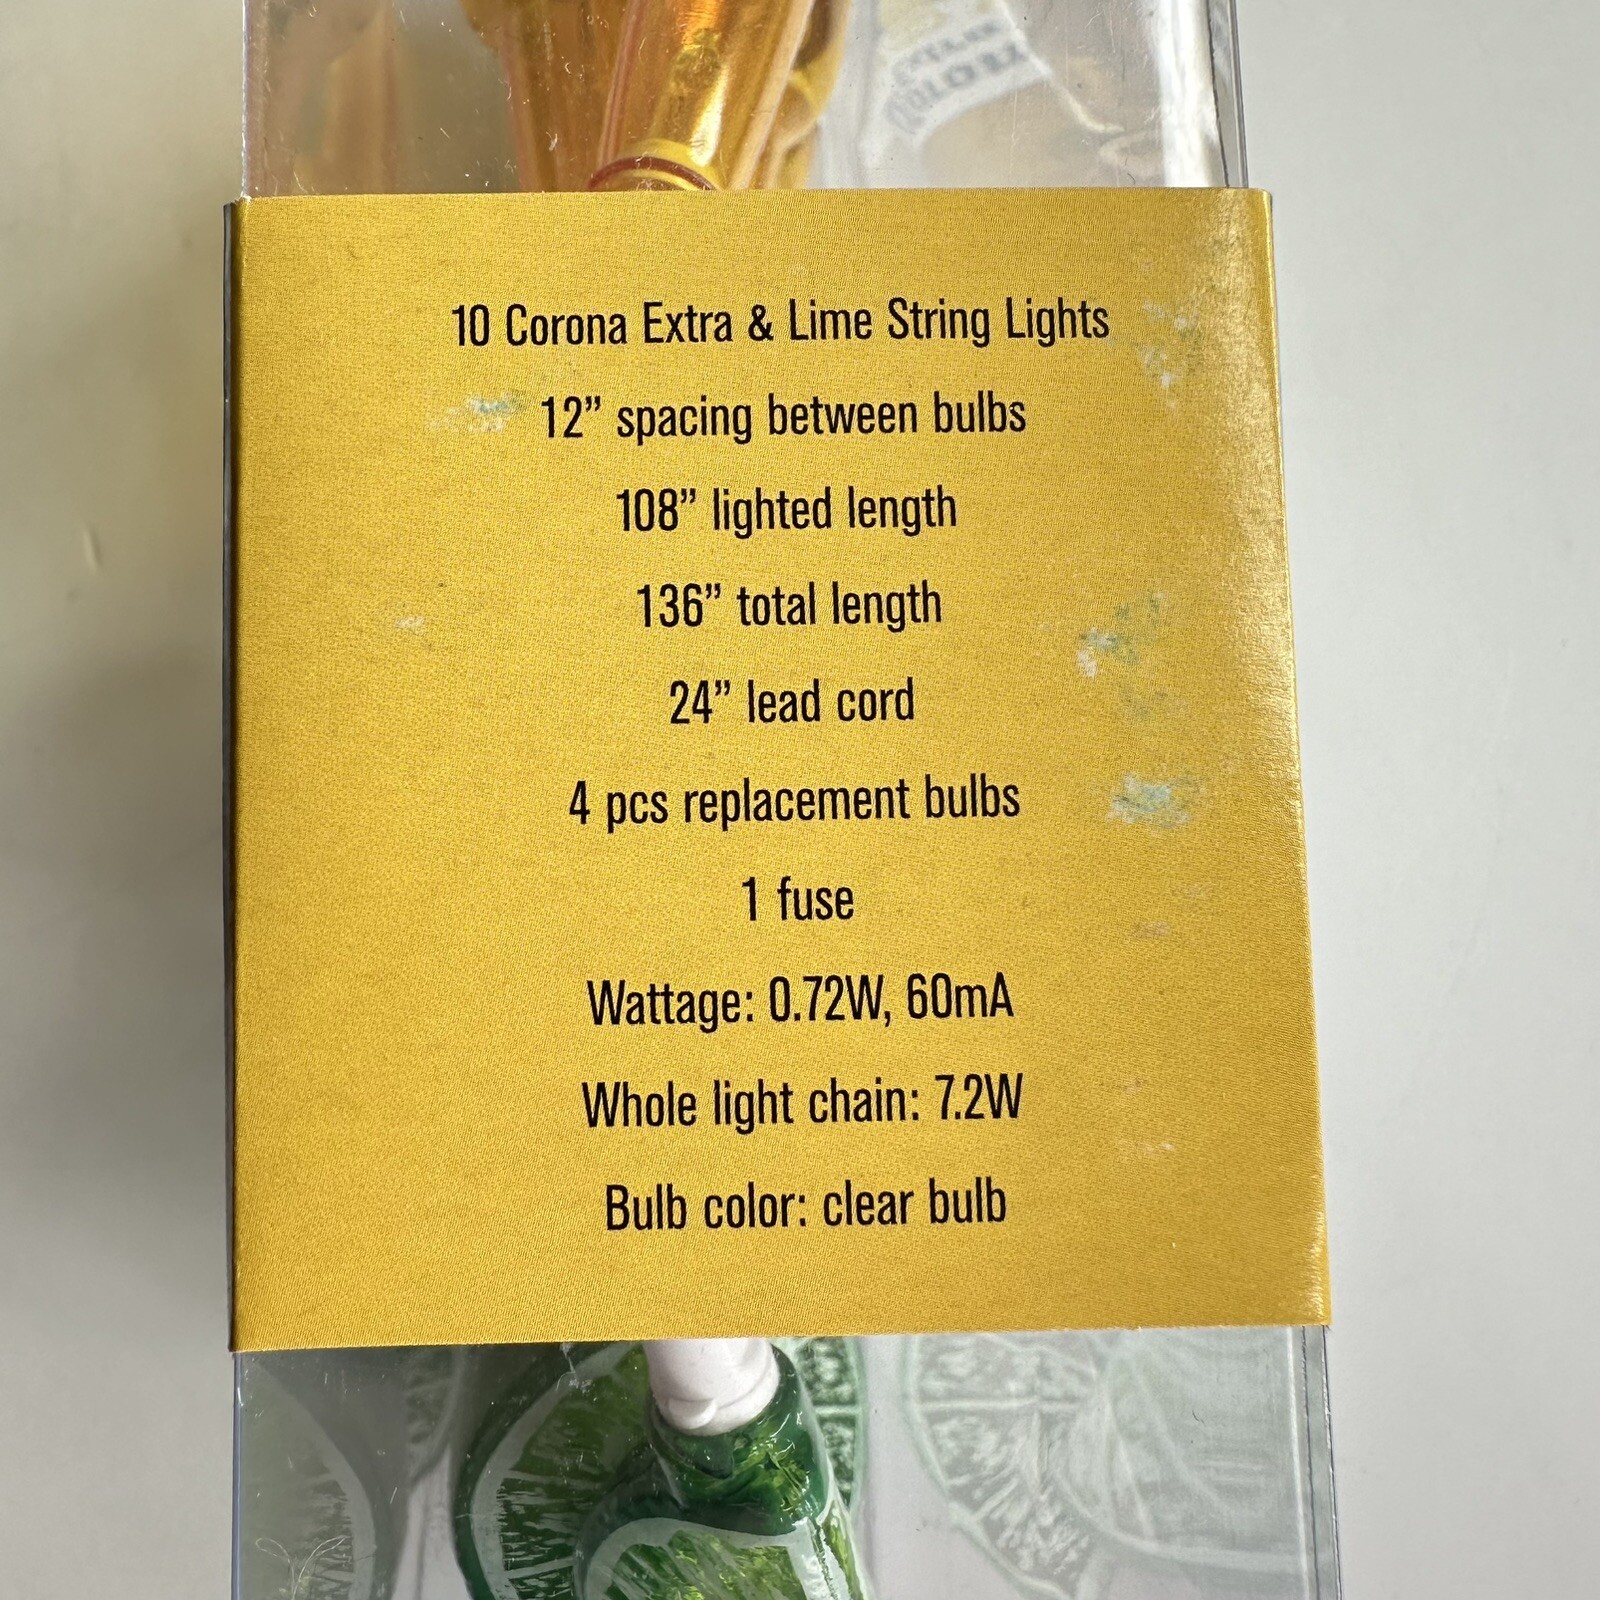 10 Corona Extra & Lime String Lights
12” spacing between bulbs
108” lighted length
136” total length
24” lead cord
4 pcs replacement bulbs
1 fuse
Wattage: 0.72W, 60mA
Whole light chain: 7.2W
Bulb color: clear bulb